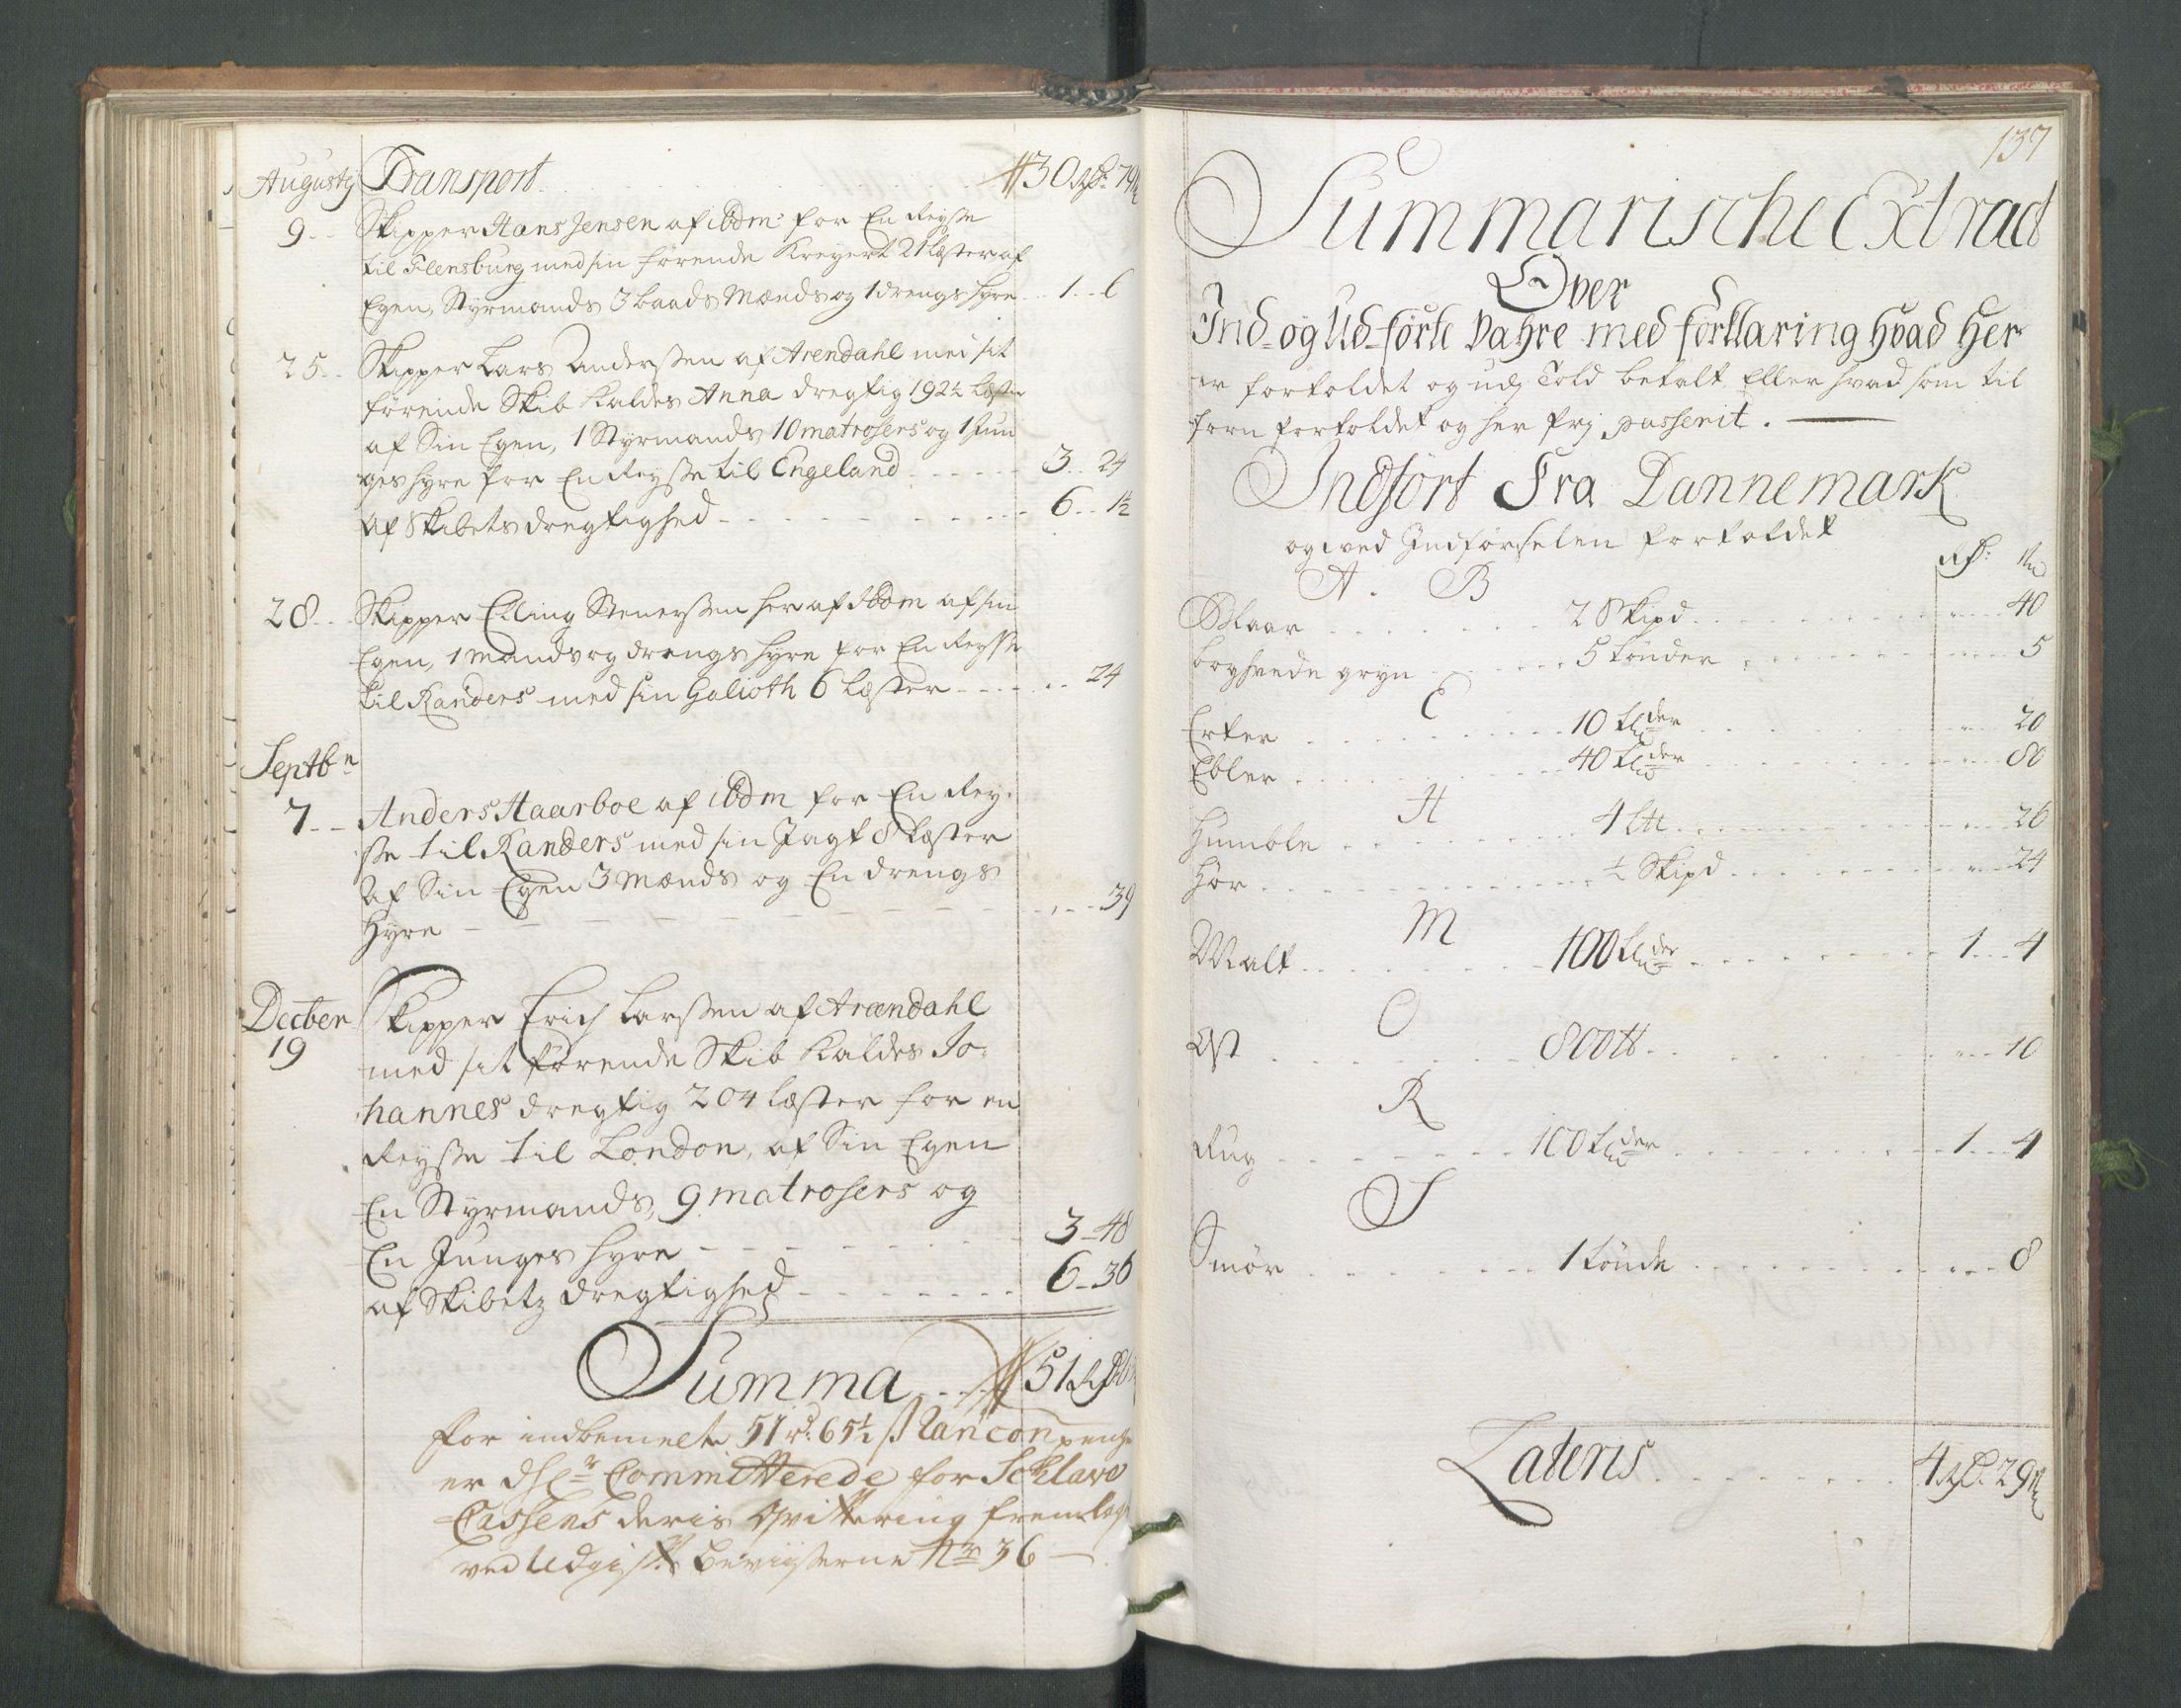 Augustij Transport . . . # 30 Rdr: 79
9 . . Skipper Hans Jensen af ibdm: for En Reyse
til Flensburg med sin førende Kreyert 21 læster af
Egen, Styrmands 3 baads Mænds og 1 drengs hyre . . 1 . . 6
25 . . Skipper Lars Anderssen af Arendahl med sit
førende Skib Kaldes Anna dregtig 192½ læster
af Sin Egen, 1 Styrmands 10 matrosers og 1 Jun
ges hyre for En Reysse til Engeland . . . 3 . . 24
af Skibets dregtighed . . . 6 . . 1½
28 . . Skipper Elling Stenerssen her af ibdm af sin
Egen, 1 Mands og drengs hyre for En Reysse
til Randers med sin Galioth 6 læster . . . 24
Septbr
7 . . Anders Haarboe af ibdm for En Rey-
se til Randers med sin Jagt 8 læster
af Sin Egen 3 Mænds og En drengs
hyre . . . 39
Decber
19
Skipper Erich Larssen af Arændahl
med sit førende Skib Kaldes Jo-
hannes dregtig 204 læster for en
Reysse til London, af Sin Egen
En Styrmands, 9 matrosers og
En Junges hyre . . . 3 – 48
af Skibetz dregtighed . . . 6 – 36
Summa . . . # 51 Rdr
for indbemelte 51 rd: 65½ ß Rancon penge
er dhr: Committerede for Schlave
=Cassens deris Qvittering fremlagt
ved Udgifts beviisserne Nr: 36 —
137
Summarische Extract
Over
Ind- og Ud-førte Vahre med forklaring hvad Her
er fortoldet og udj Told betalt Eller hvad som til
forn fortoldet og her frj passerit . —
Indført Fra Dannemark
og ved Indførselen fortoldet
Rdr: ß
A . B
Blaar . . . 2 Skipd . . . 40
boghvede gryn . . . 5 tønder . . . 5
E
Erter . . . 10 tnder . . . 20
Ebler . . . 40 tnder . . . 80
H
Humble . . . 4 Ltt . . . 26
Hør . . . ½ Skipd . . . 24
M
Malt . . . 100 tnder . . . 1 . . . 4
O
Ost . . . 800 tt . . . 10
R
Rug . . . 100 tnder . . . 1 . . . 4
S
Smør . . . 1 tønde . . . 8
Lateris . . . 4 Rdr. 29 ß